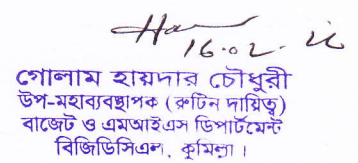 16.02.
গোলাম হায়দার চৌধুরী
উপ-মহাব্যবস্থাপক (রুটিন দায়িত্ব)
বাজেট ও এমআইএস ডিপার্টমেন্ট
বিজিডিসিএল, কুমিল্লা।